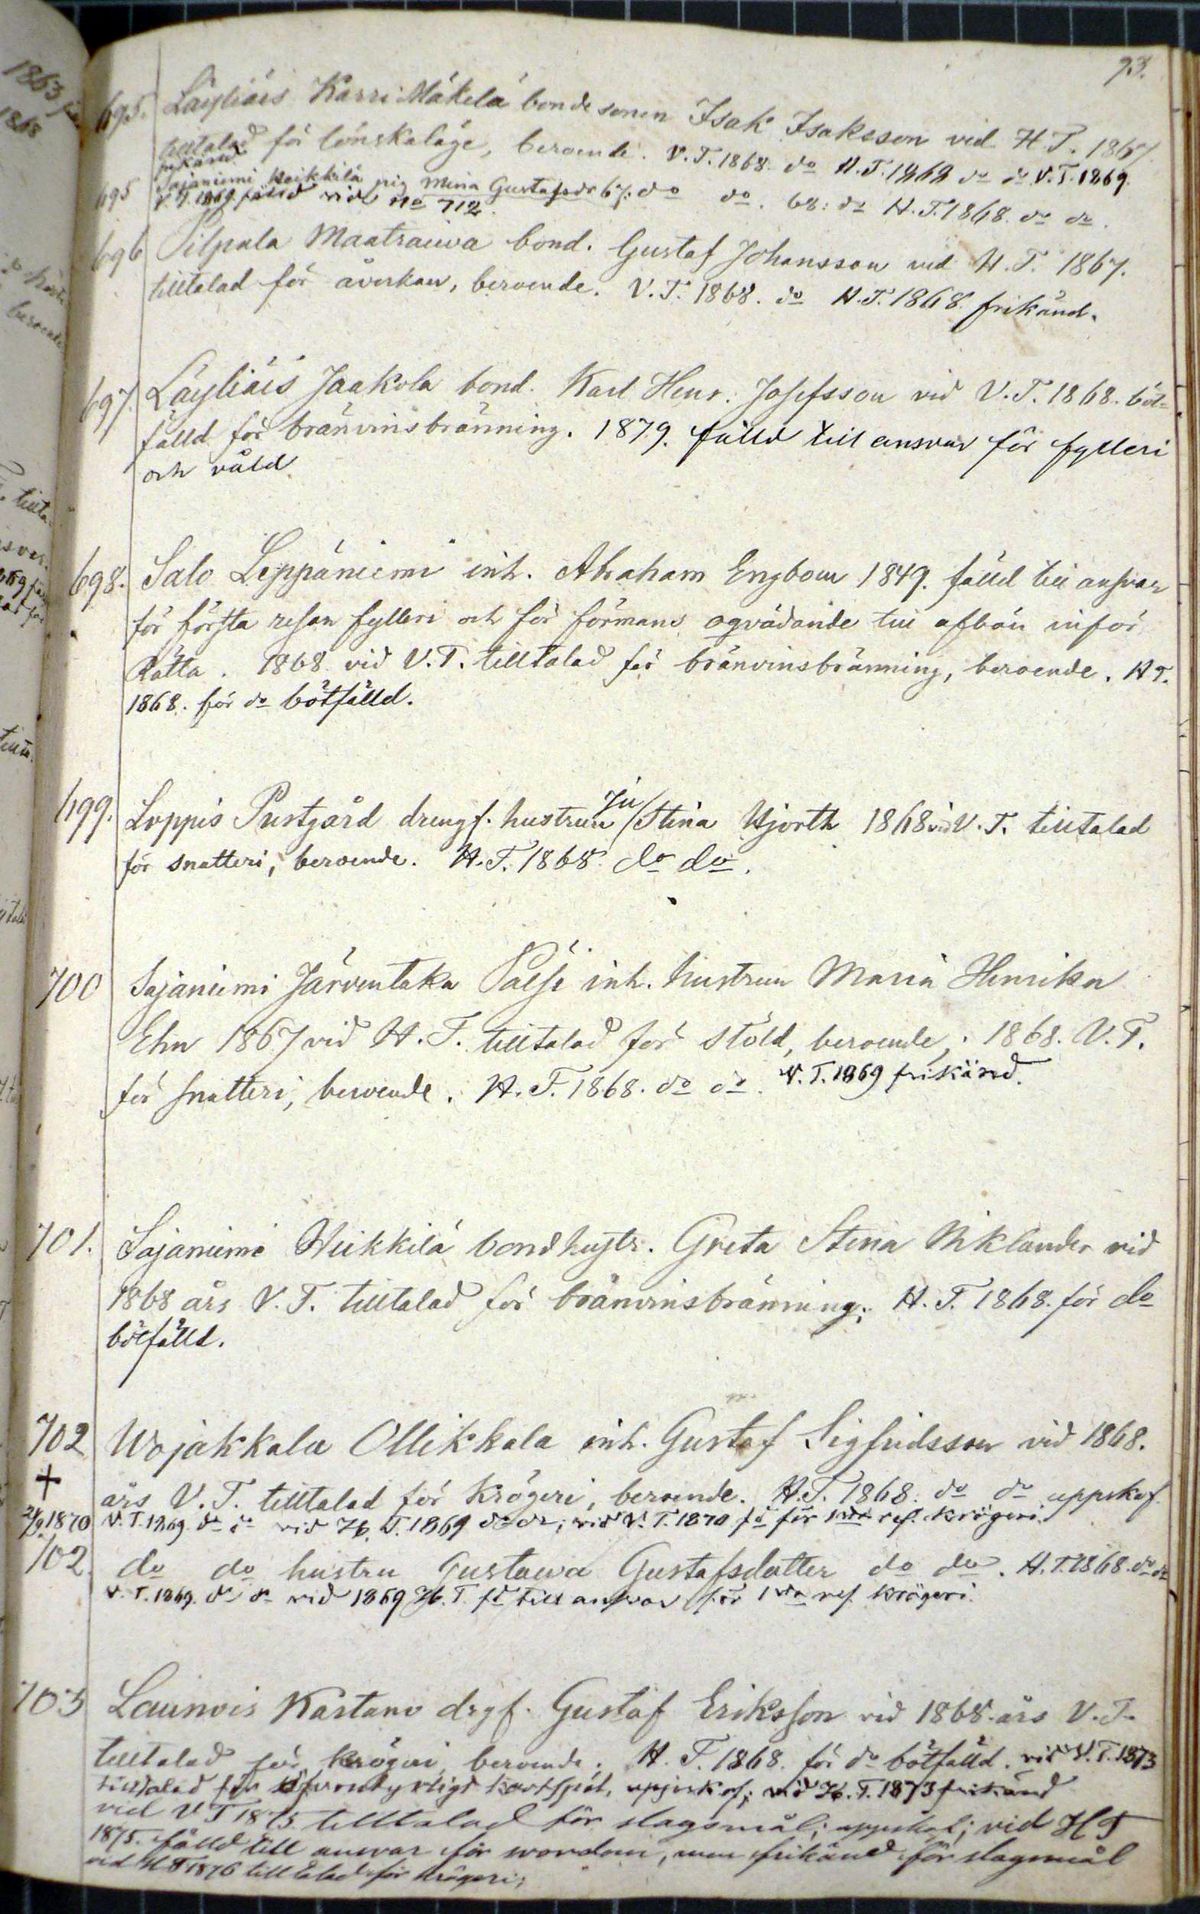 93.
1863
1868
695. Läyliäis Karri Mäkelä bondesonen Isak Isaksson vid H.T. 1867
tilltalad för lönskaläge, beroende. V.T. 1868. do H.T. 1868 do do V.T. 1869.
frikänd
695 Sajaniemi Heikkilä pig Mina Gustafsdr 67. do do. 68: do H.T. 1868. do do.
V.T. 1869 fälld vid No 712.
696 Pilpala Maatraiwa bond. Gustaf Johansson vid H.T. 1867.
tilltalad för åverkan, beroende. V.T. 1868. do H.T. 1868. frikänd.
697. Läyliäis Jaakola bond. Karl Henr. Josefsson vid V.T. 1868. böt-
fälld för bränvinsbränning. 1879. fälld till ansvar för fylleri
och våld
698. Salo Leppäniemi inh. Abraham Engbom 1849. fälld till ansvar
för första resan fylleri och för förmans ogvädande till afbön inför
Rätta. 1868 vid V.T. tilltalad för bränvinsbränning, beroende. H T.
1868. för do bötfälld.
699. Loppis Prestgård drengf. hustrun Ju Stina Hjorth 1868 vid V.T. tilltalad
för snatteri, beroende. H.T. 1868. do do.
700 Sajaniemi Järventaka inh. hustrun Maria Henrika
Ehn 1867 vid H.T. tilltalad för stöld, beroende; 1868. V.T.
för snatteri, beroende. H.T. 1868. do do. V.T. 1869 frikänd.
701. Sajaniemi Heikkilä bondhustr. Greta Stina Niklander vid
1868 års V.T. tilltalad för bränvinsbränning; H.T. 1868. för do
bötfälld.
702 Wojakkala Ollikkala inh. Gustaf Sigfridsson vid 1868.
+
års V.T. tilltalad för krögeri, beroende. H.T. 1868. do do uppskof.
1870 V.T. 1869 do do vid H.T. 1869 do do; vid V.T. 1870 fd för 1sta res. krögeri.
702. do do hustru Gustawa Gustafsdotter do do. H.T. 1868. do do
V.T. 1869. do do vid 1869 H.T. fd till answar för 1sta res. krögeri.
703 Launois Kartano drgf. Gustaf Eriksson vid 1868. års V.T.
tilltalad för krögeri, beroende; H.T. 1868. för do bötfälld. vid V.T. 1873
tilltalad för kortspel, uppskof; vid H.T. 1873 frikänd
vid V T 1875 tilltalad för slagsmål; uppskof; vid H T
1875. fälld till answar för swordom, men frikänd för slagsmål
vid H T 1876 tilltalad för krögeri;